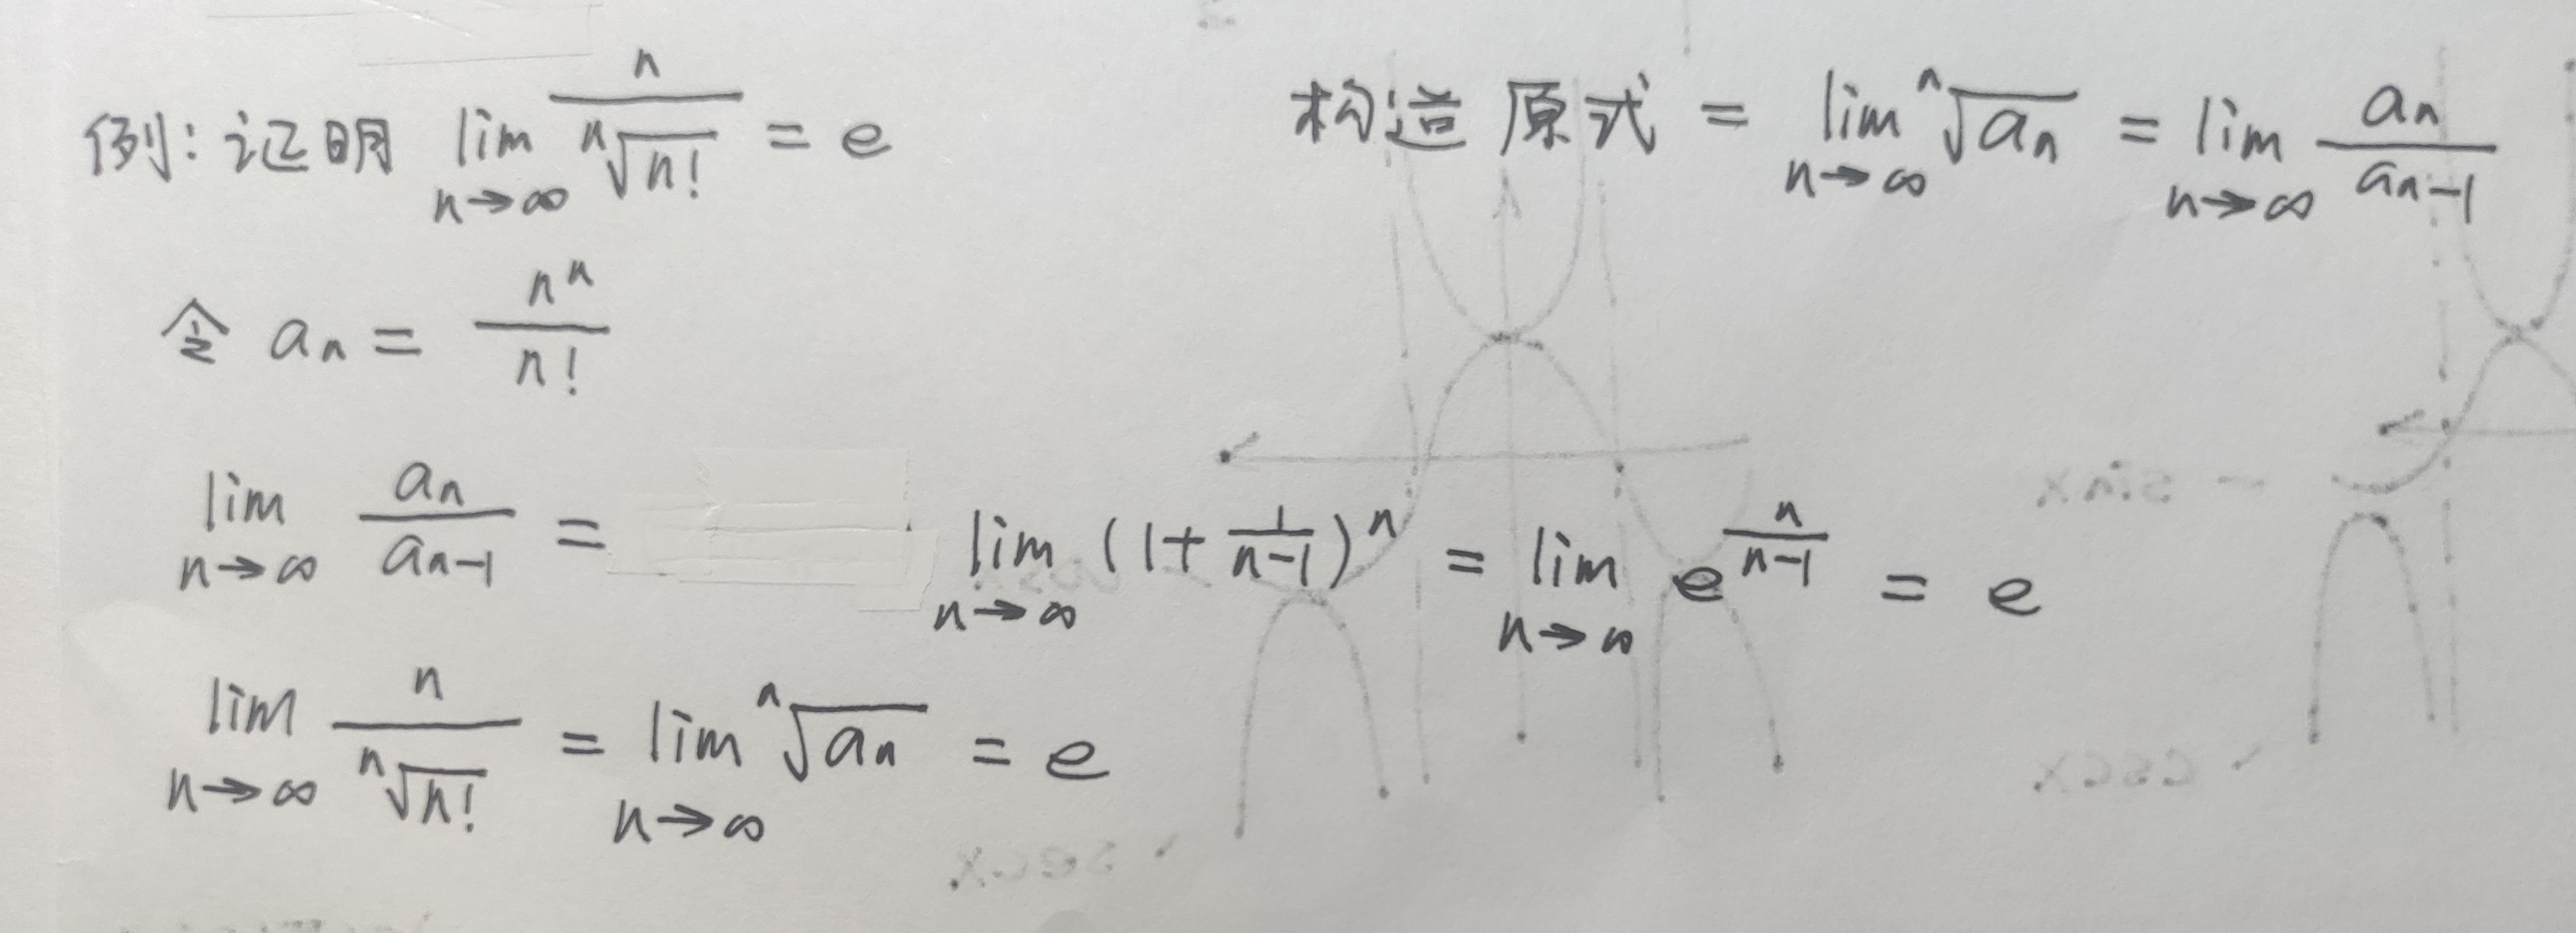 例: 证明 lim_{n→∞} n/ⁿ√(n!) = e
构造 原式 = lim_{n→∞} ⁿ√(aₙ) = lim_{n→∞} aₙ/aₙ₋₁
令 aₙ = nⁿ/n!
lim_{n→∞} aₙ/aₙ₋₁ = lim_{n→∞} (1+1/(n-1))ⁿ = lim_{n→∞} e^{n/(n-1)} = e
lim_{n→∞} n/ⁿ√(n!) = lim_{n→∞} ⁿ√(aₙ) = e
sinx
cscx
secx